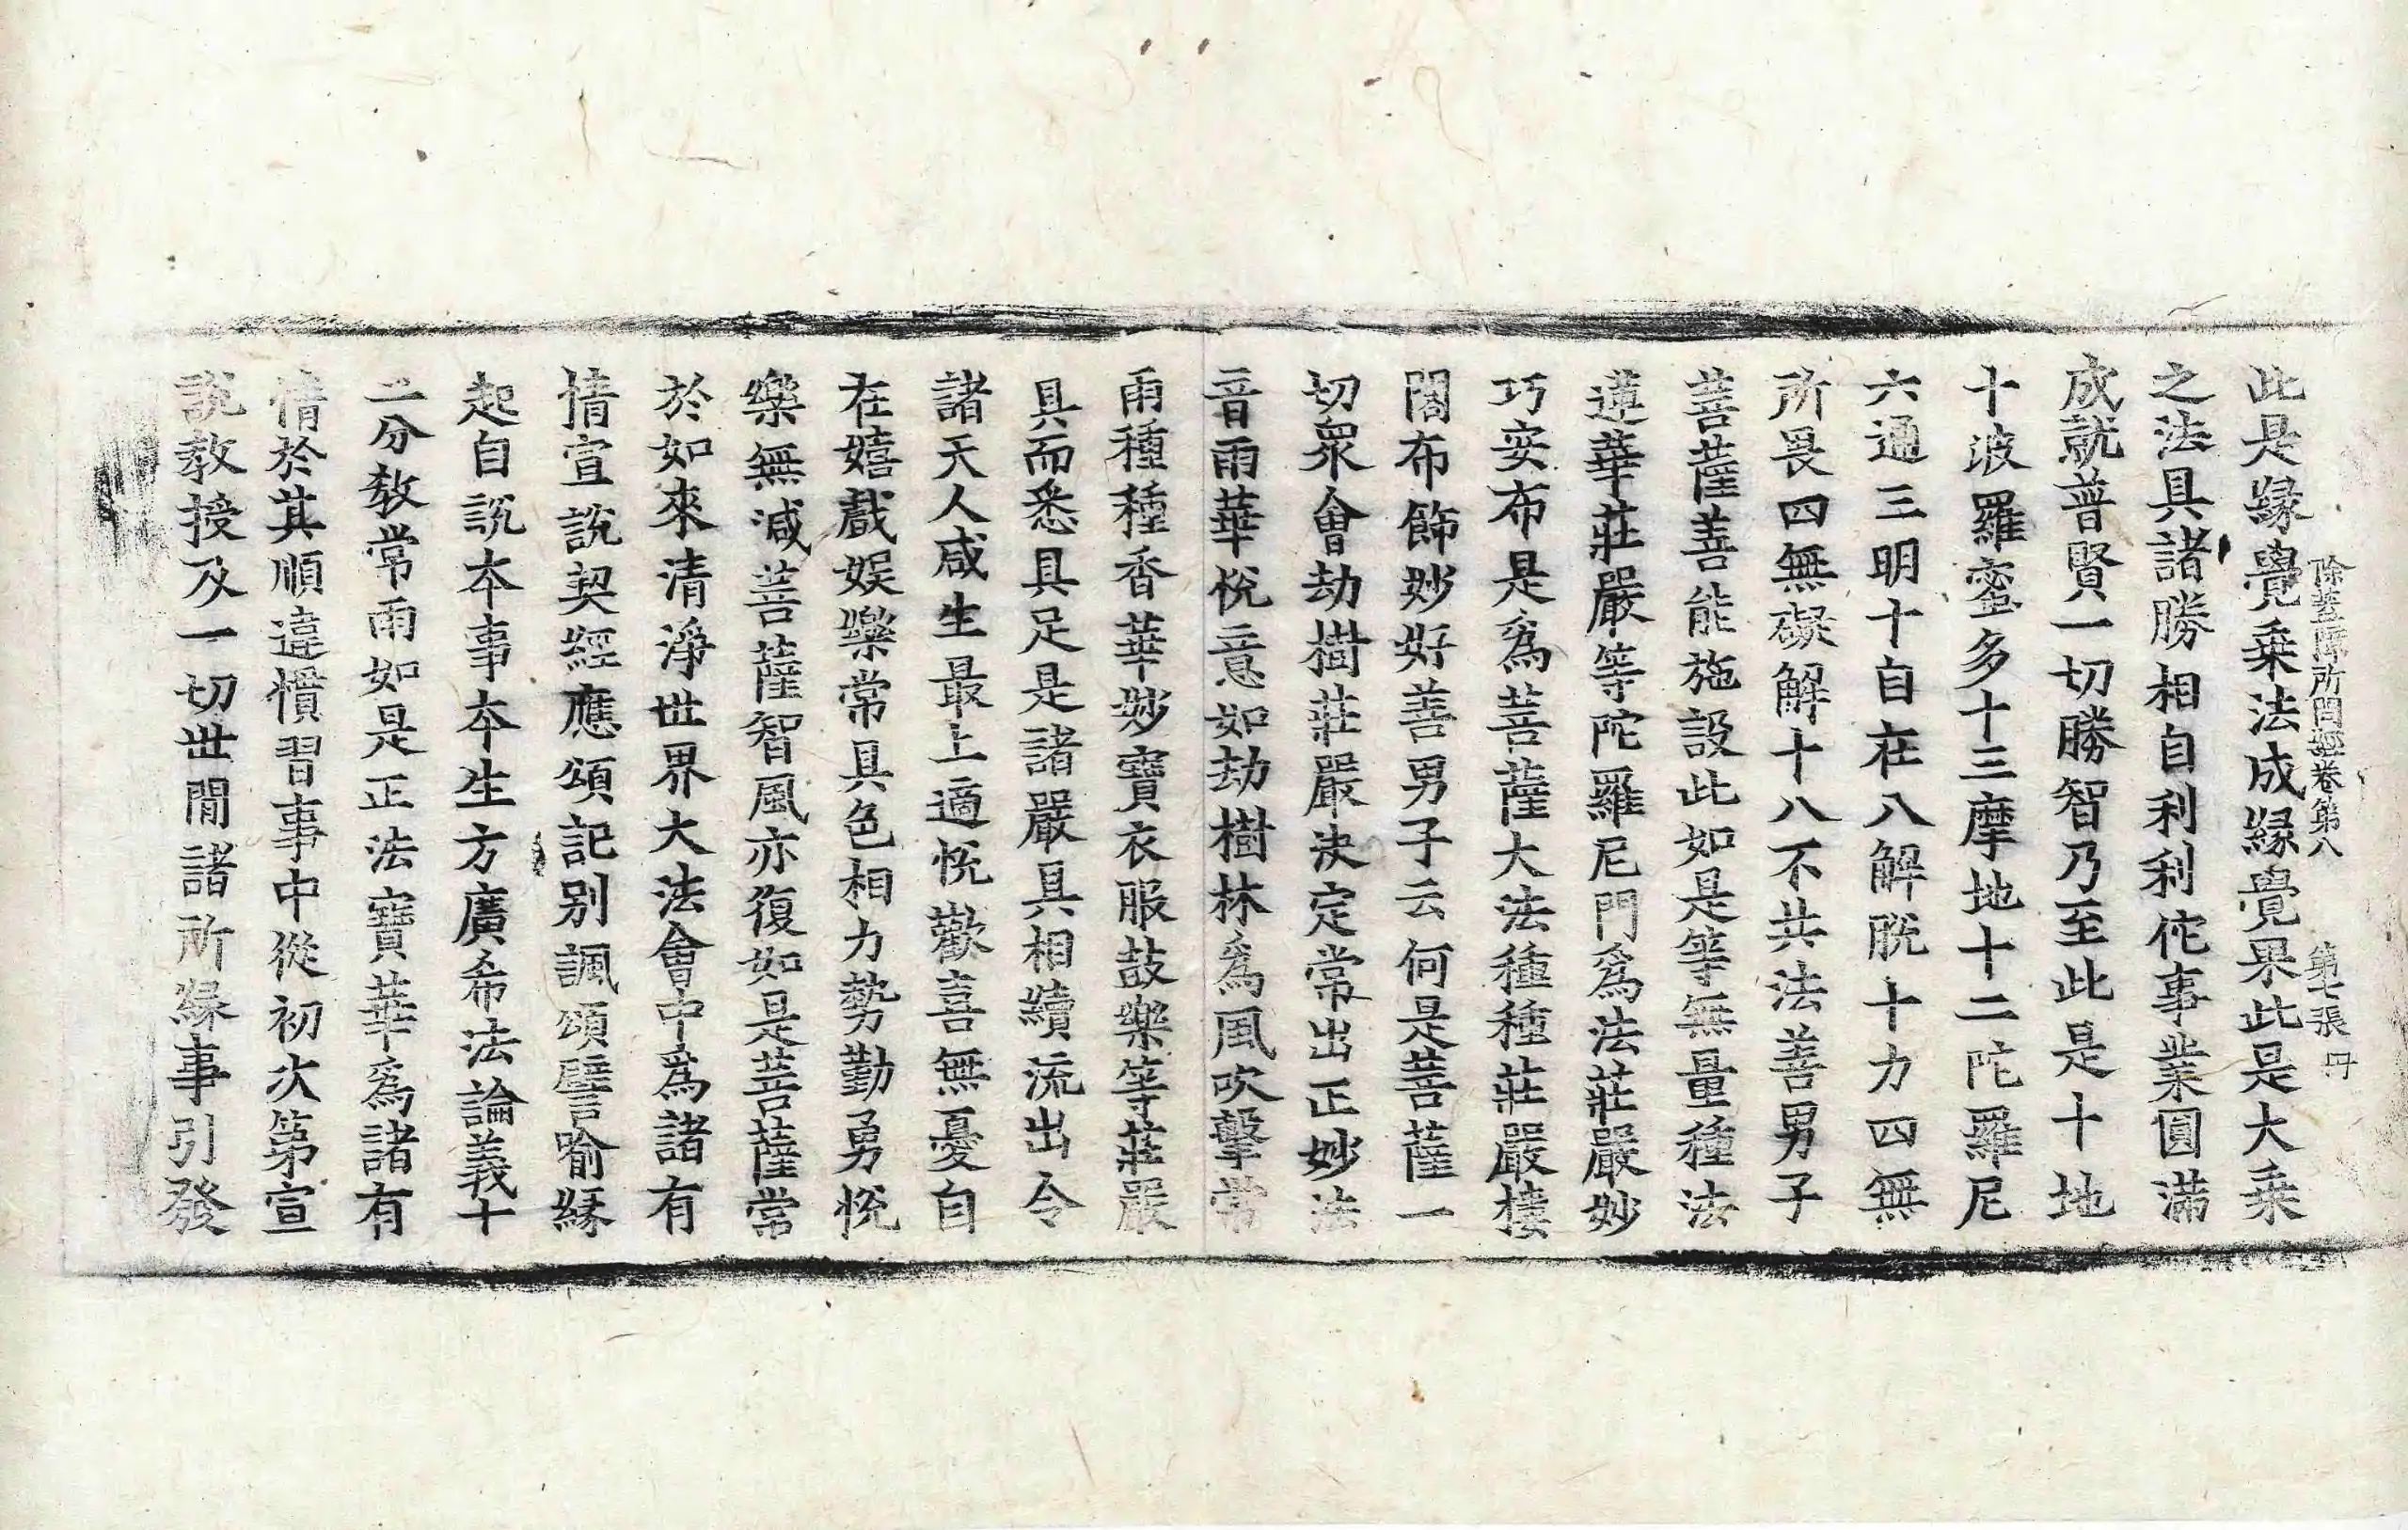 除蓋障所問經卷第八　第七張　冊
此是緣覺乗法成緣覺果此是大乗
之法具諸勝相自利利佗事業圓滿
成就普賢一切勝智乃至此是十地
十波羅蜜多十三摩地十二陀羅尼
六通三明十自在八解脫十力四無
所畏四無礙解十八不共法善男子
菩薩善能施設此如是等無量種法
蓮華莊嚴等陀羅尼門爲法莊嚴妙
巧安布是爲菩薩大法種種莊嚴樓
閣布飾妙好善男子云何是菩薩一
切衆會劫樹莊嚴決定常出正妙法
音雨華悅意如劫樹林爲風吹擊常
雨種種香華妙寶衣服鼓樂等莊嚴
具而悉具足是諸嚴具相續流出令
諸天人咸生最上適悅歡喜無憂自
在嬉戲娛樂常具色相力勢勤勇悅
樂無減菩薩智風亦復如是菩薩常
於如來清淨世界大法會中爲諸有
情宣說契經應頌記别諷頌譬喻緣
起自說本事本生方廣希法論義十
二分教常雨如是正法寶華爲諸有
情於其順違慣習事中從初次第宣
說教授及一切世間諸所緣事引發